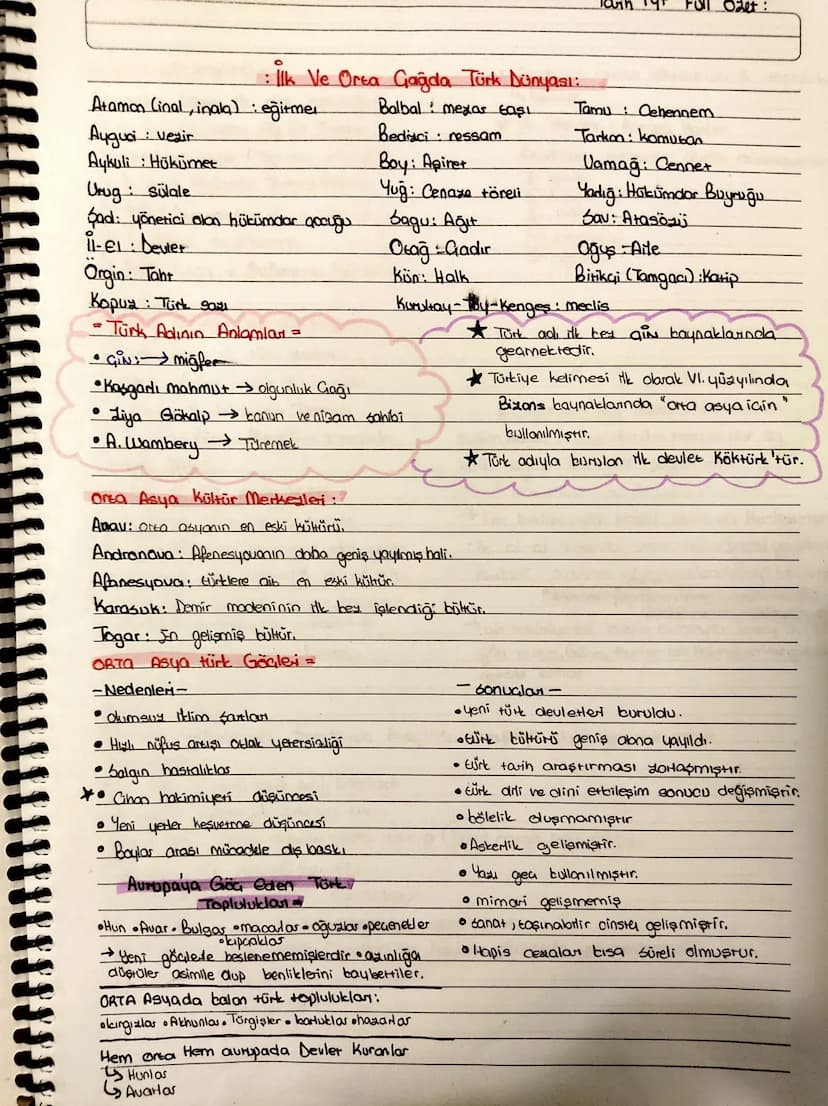 Tarih TYT Full Özet:
: İlk Ve Orta Çağda Türk Dünyası:
Ataman (inal, inala) : eğitmen Balbal : mezar taşı Tamu : Cehennem
Ayguci : vezir Bedizci : ressam Tarkan : komutan
Aykuli : Hükümet Boy : Aşiret Uamağ : Cennet
Urug : sülale Yuğ : Cenaze töreli Yadığ : Hükümdar Buyruğu
Şad: yönetici olan hükümdar çocuğu Sagu : Ağıt Sav : Atasözü
İl-el : Devlet Otağ : Çadır Oğuş : Aile
Örgin : Taht Kün : Halk Bitikçi (Tamgacı) : Katip
Kopuz : Türk sazı Kurultay-Toy-Kengeş : meclis
= Türk Adının Anlamları =
• Çin : → miğfer
• Kaşgarlı mahmut → olgunluk Çağı
• Ziya Gökalp → kanun ve nizam sahibi
• A. Wambery → Türemek
★ Türk adı ilk kez Çin kaynaklarında
geçmektedir.
★ Türkiye kelimesi ilk olarak VI. yüzyılında
Bizans kaynaklarında "orta asya için"
kullanılmıştır.
★ Türk adıyla kurulan ilk devlet Köktürk'tür.
Orta Asya Kültür Merkezleri :
Anav: orta asyanın en eski kültürü.
Andronova : Afenesyovanın daha geniş yayılmış hali.
Afanesyova : türklere ait en eski kültür.
Karasuk : Demir madeninin ilk kez işlendiği kültür.
Tagar : En gelişmiş kültür.
ORTA Asya türk Göçleri =
-Nedenleri-
• olumsuz iklim şartları
• Hızlı nüfus artışı otlak yetersizliği
• Salgın hastalıklar
★• Cihan hakimiyeti düşüncesi
• Yeni yerler keşvetme düşüncesi
• Boylar arası mücadele dış baskı
- Sonuçları -
• yeni türk devletleri kuruldu.
• türk kültürü geniş alana yayıldı.
• türk tarih araştırması zorlaşmıştır.
• türk dili ve dini etkileşim sonucu değişmiştir.
• bölelik oluşmamıştır
• Askerlik gelişmiştir.
• Yazı geç kullanılmıştır.
• mimari gelişmemiş
• Sanat, taşınabilir cinste gelişmiştir.
• Hapis cezaları kısa süreli olmuştur.
Avrupa'ya Göç Eden Türk
Toplulukları =
• Hun • Avar • Bulgar • macarlar • oğuzlar • peçenekler
• kıpçaklar
→ Yeni göçlerle beslenememişlerdir • azınlığa
düştüler asimile olup benliklerini kaybettiler.
ORTA Asyada kalan türk toplulukları :
• kırgızlar • Akhunlar • Türgişler • karluklar • hazarlar
Hem orta Hem avrupada Devlet Kuranlar
↳ Hunlar
↳ Avarlar